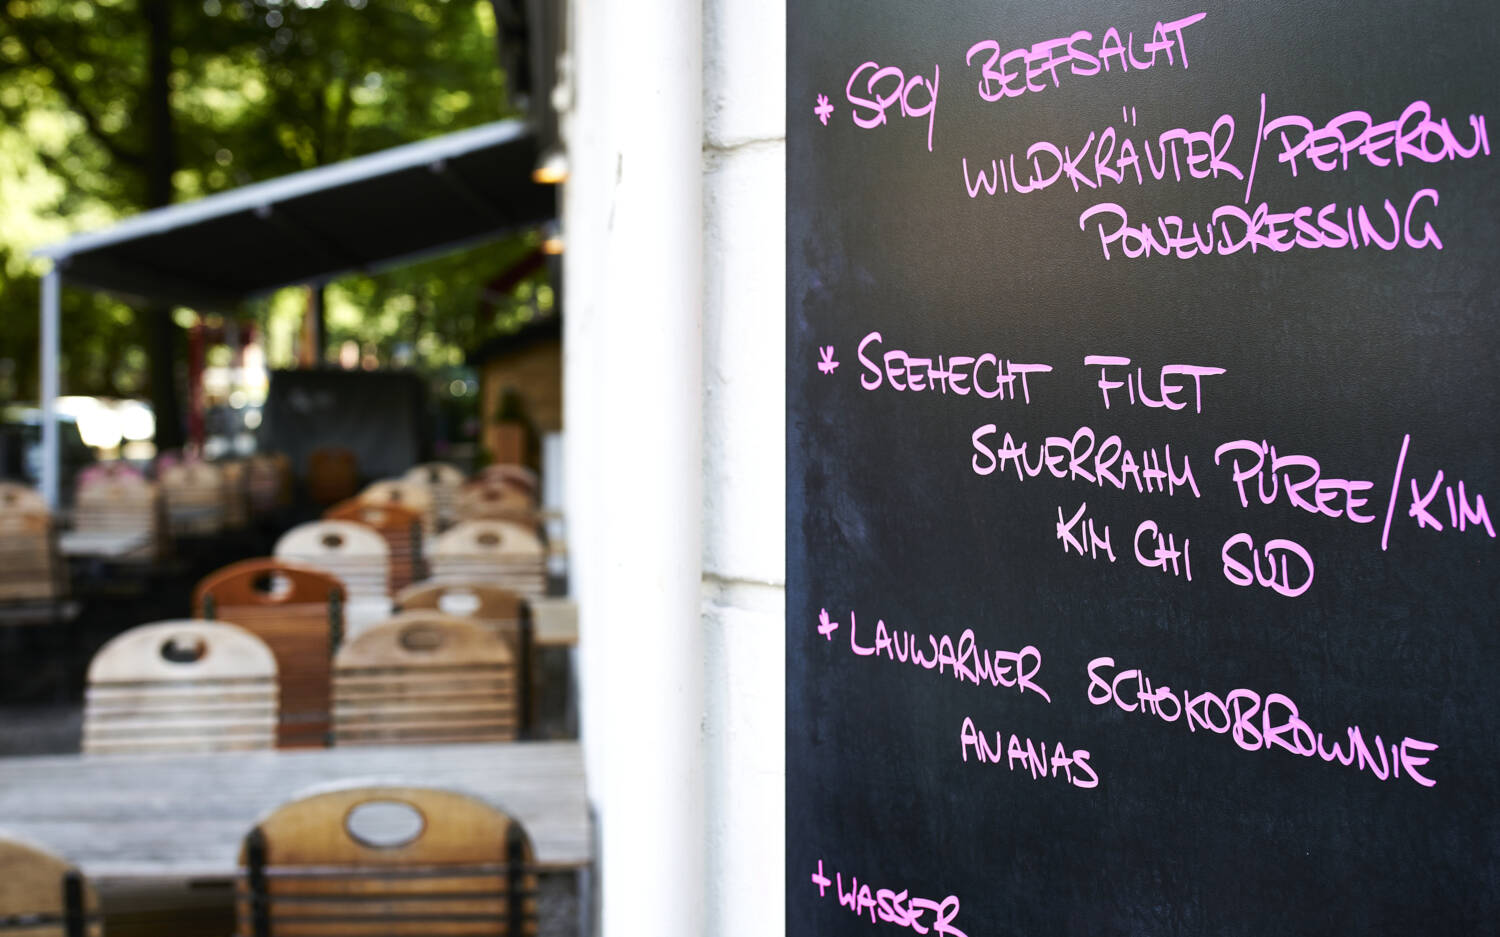 * SPICY BEEFSALAT
WILDKRÄUTER/PEPERONI
PONZUDRESSING
* SEEHECHT FILET
SAUERRAHM PÜREE/KIM
KIM CHI SUD
* LAUWARMER SCHOKOBROWNIE
ANANAS
+ WASSER